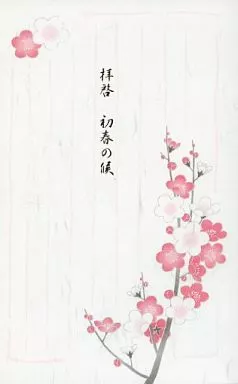 拝啓　初春の候、